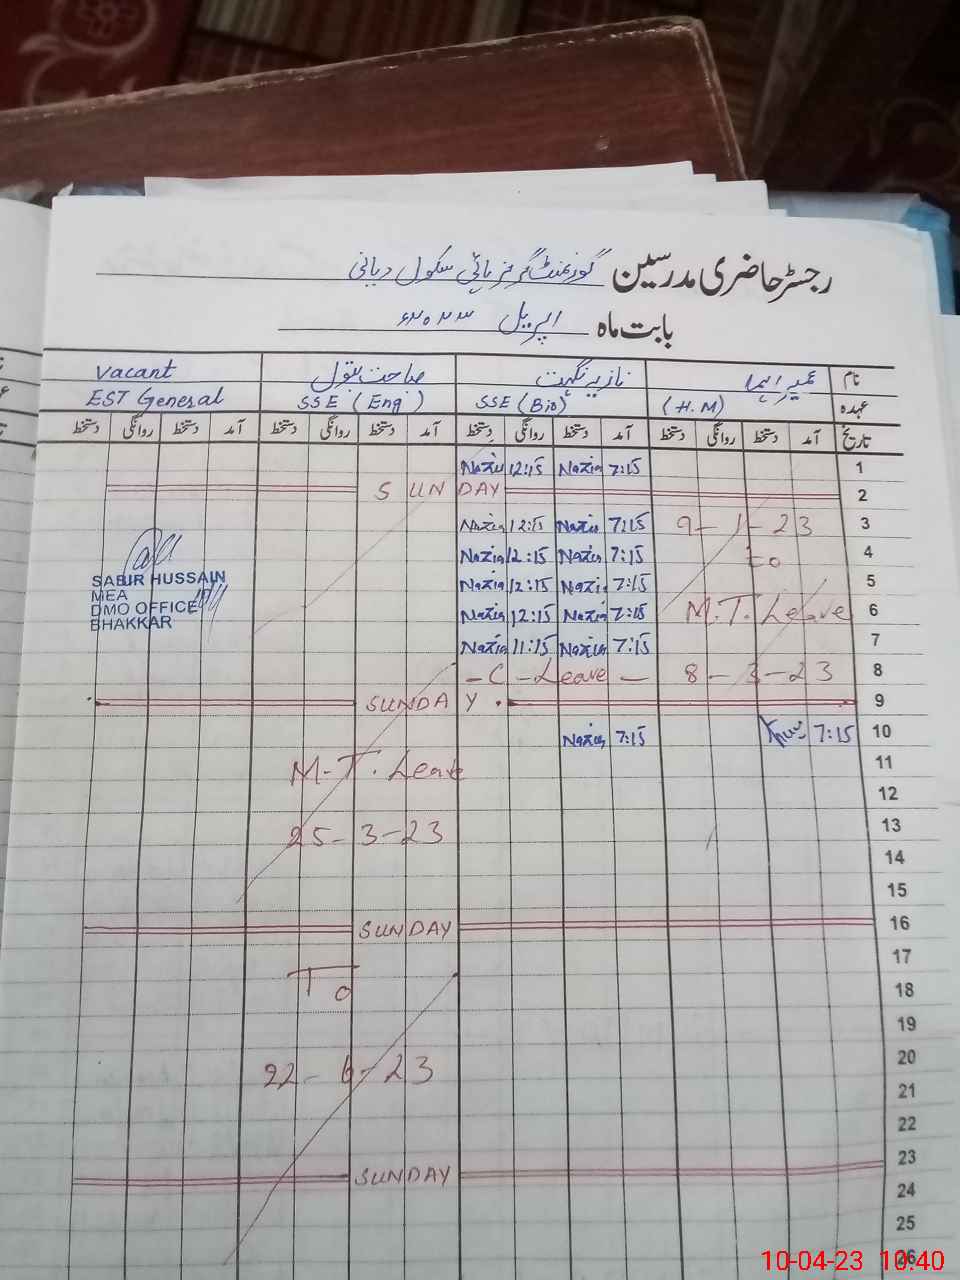 رجسٹر حاضری مدرسین گورنمنٹ گرلز ہائی سکول
بابت ماہ اپریل ۲۰۲۳ء
نام نازیہ نگہت صباحت بتول Vacant
عہدہ (H.M) SSE (Bio) SSE (Eng) EST General
تاریخ آمد دستخط روانگی دستخط آمد دستخط روانگی دستخط آمد دستخط روانگی دستخط آمد دستخط روانگی دستخط
1 7:15 Nazia 12:15 Nazia
2 SUNDAY
3 9-1-23 7:15 Nazia 12:15 Nazia
4 to 7:15 Nazia 12:15 Nazia
5 7:15 Nazia 12:15 Nazia
6 M.T. Leave 7:15 Nazia 12:15 Nazia
7 7:15 Nazia 11:15 Nazia
8 8-3-23 - C - Leave -
9 SUNDAY
10 7:15 7:15 Nazia
11 M.T. Leave
12
13 25-3-23
14
15
16 SUNDAY
17
18 To
19
20 22-6-23
21
22
23 SUNDAY
24
25
26
SABIR HUSSAIN
MEA
DMO OFFICE
BHAKKAR
10-04-23 10:40